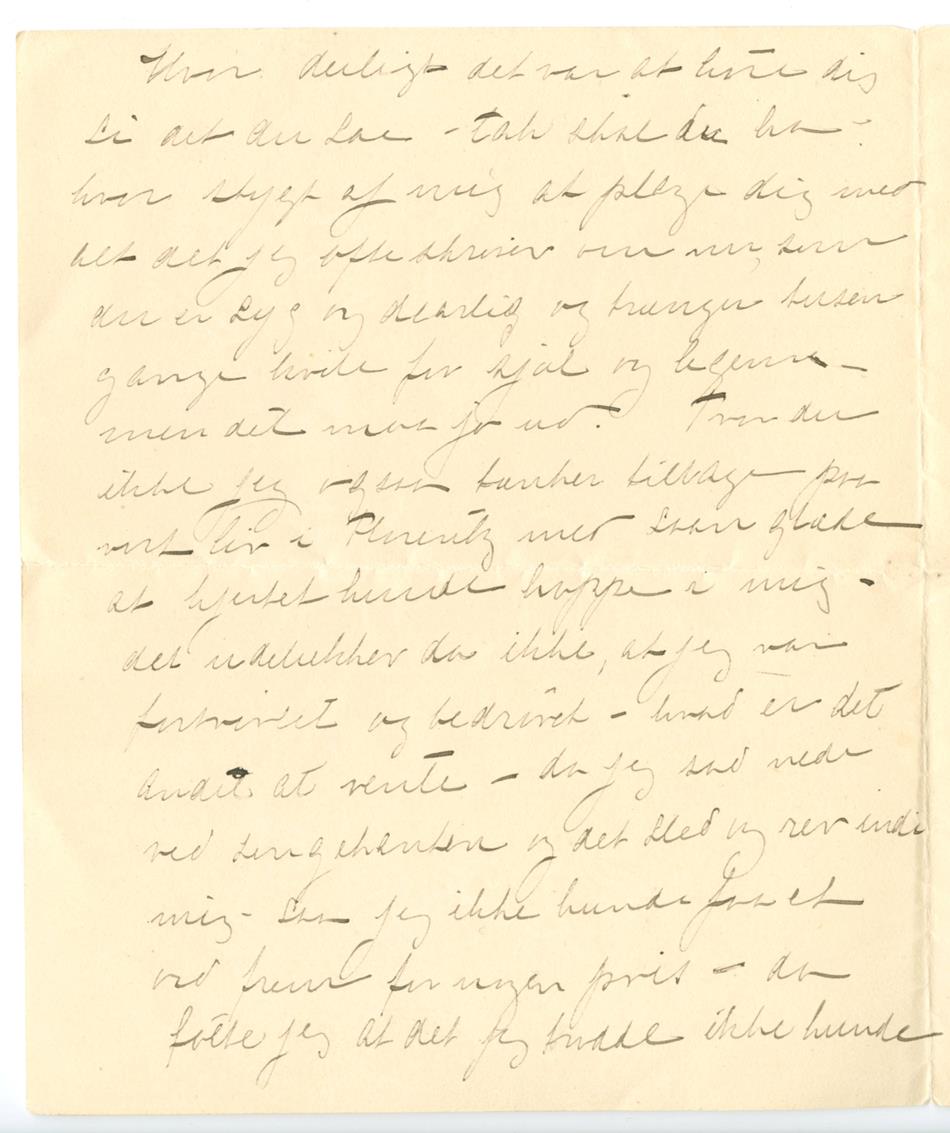 Hvor deiligt det var at høre dig
si det du sae - tak skal du ha -
hvor stygt af mig at plage dig med
alt det jeg ofte skriver om nu, som
du er syg og daarlig og trænger tusen
gange hvile for sjæl og legeme -
men det maa jo ud. Tror du
ikke jeg ogsaa tænker tilbage paa
vort liv i Florentz med saan glæde
at hjertet kunde hoppe i mig -
det udelukker da ikke, at jeg var
fortvivlet og bedrøvet - hvad er det
andet at vente - da jeg sad nede
ved sengekanten og det sled og rev indi
mig - saa jeg ikke kunde faa et
ord frem for nogen pris - da
følte jeg at det jeg trode ikke kunde